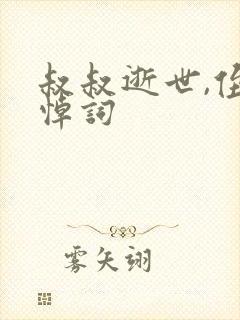 叔叔逝世,侄
悼詞
雾矢翊